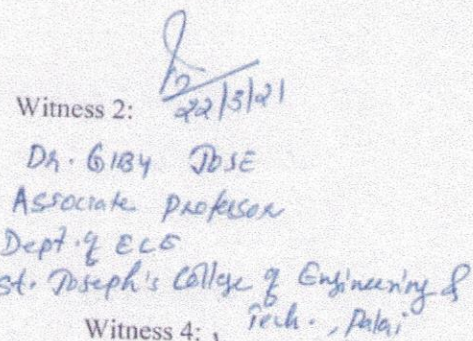 Witness 2:
22/3/21
Dr. GIBY JOSE
Associate Professor
Dept. of ECE
St. Joseph's College of Engineering &
Tech., Palai
Witness 4: